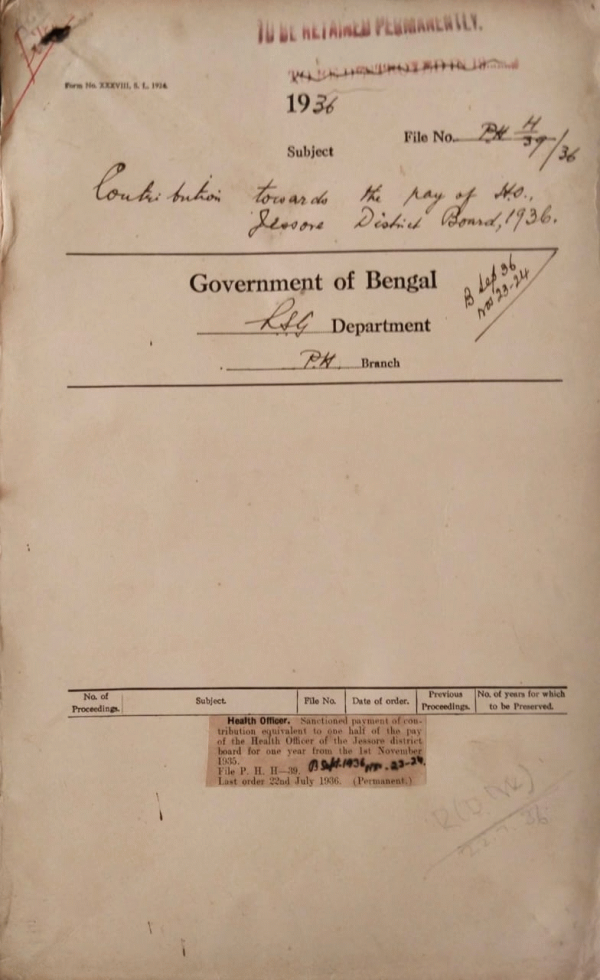 TO BE RETAINED PERMANENTLY.
Form No. XXXVIII, S. L., 1924.
1936
File No. P.H H/39/36
Subject
Contribution towards the pay of H.O.,
Jessore District Board, 1936.
Government of Bengal
B Sep 36
Nos 23-24
LSG Department
P.H. Branch
No. of Proceedings.
Subject.
File No.
Date of order.
Previous Proceedings.
No. of years for which to be Preserved.
Health Officer. Sanctioned payment of con-
tribution equivalent to one half of the pay
of the Health Officer of the Jessore district
board for one year from the 1st November
1935.
File P. H. H—39. B Sept. 1936, Nos. 23-24.
Last order 22nd July 1936. (Permanent.)